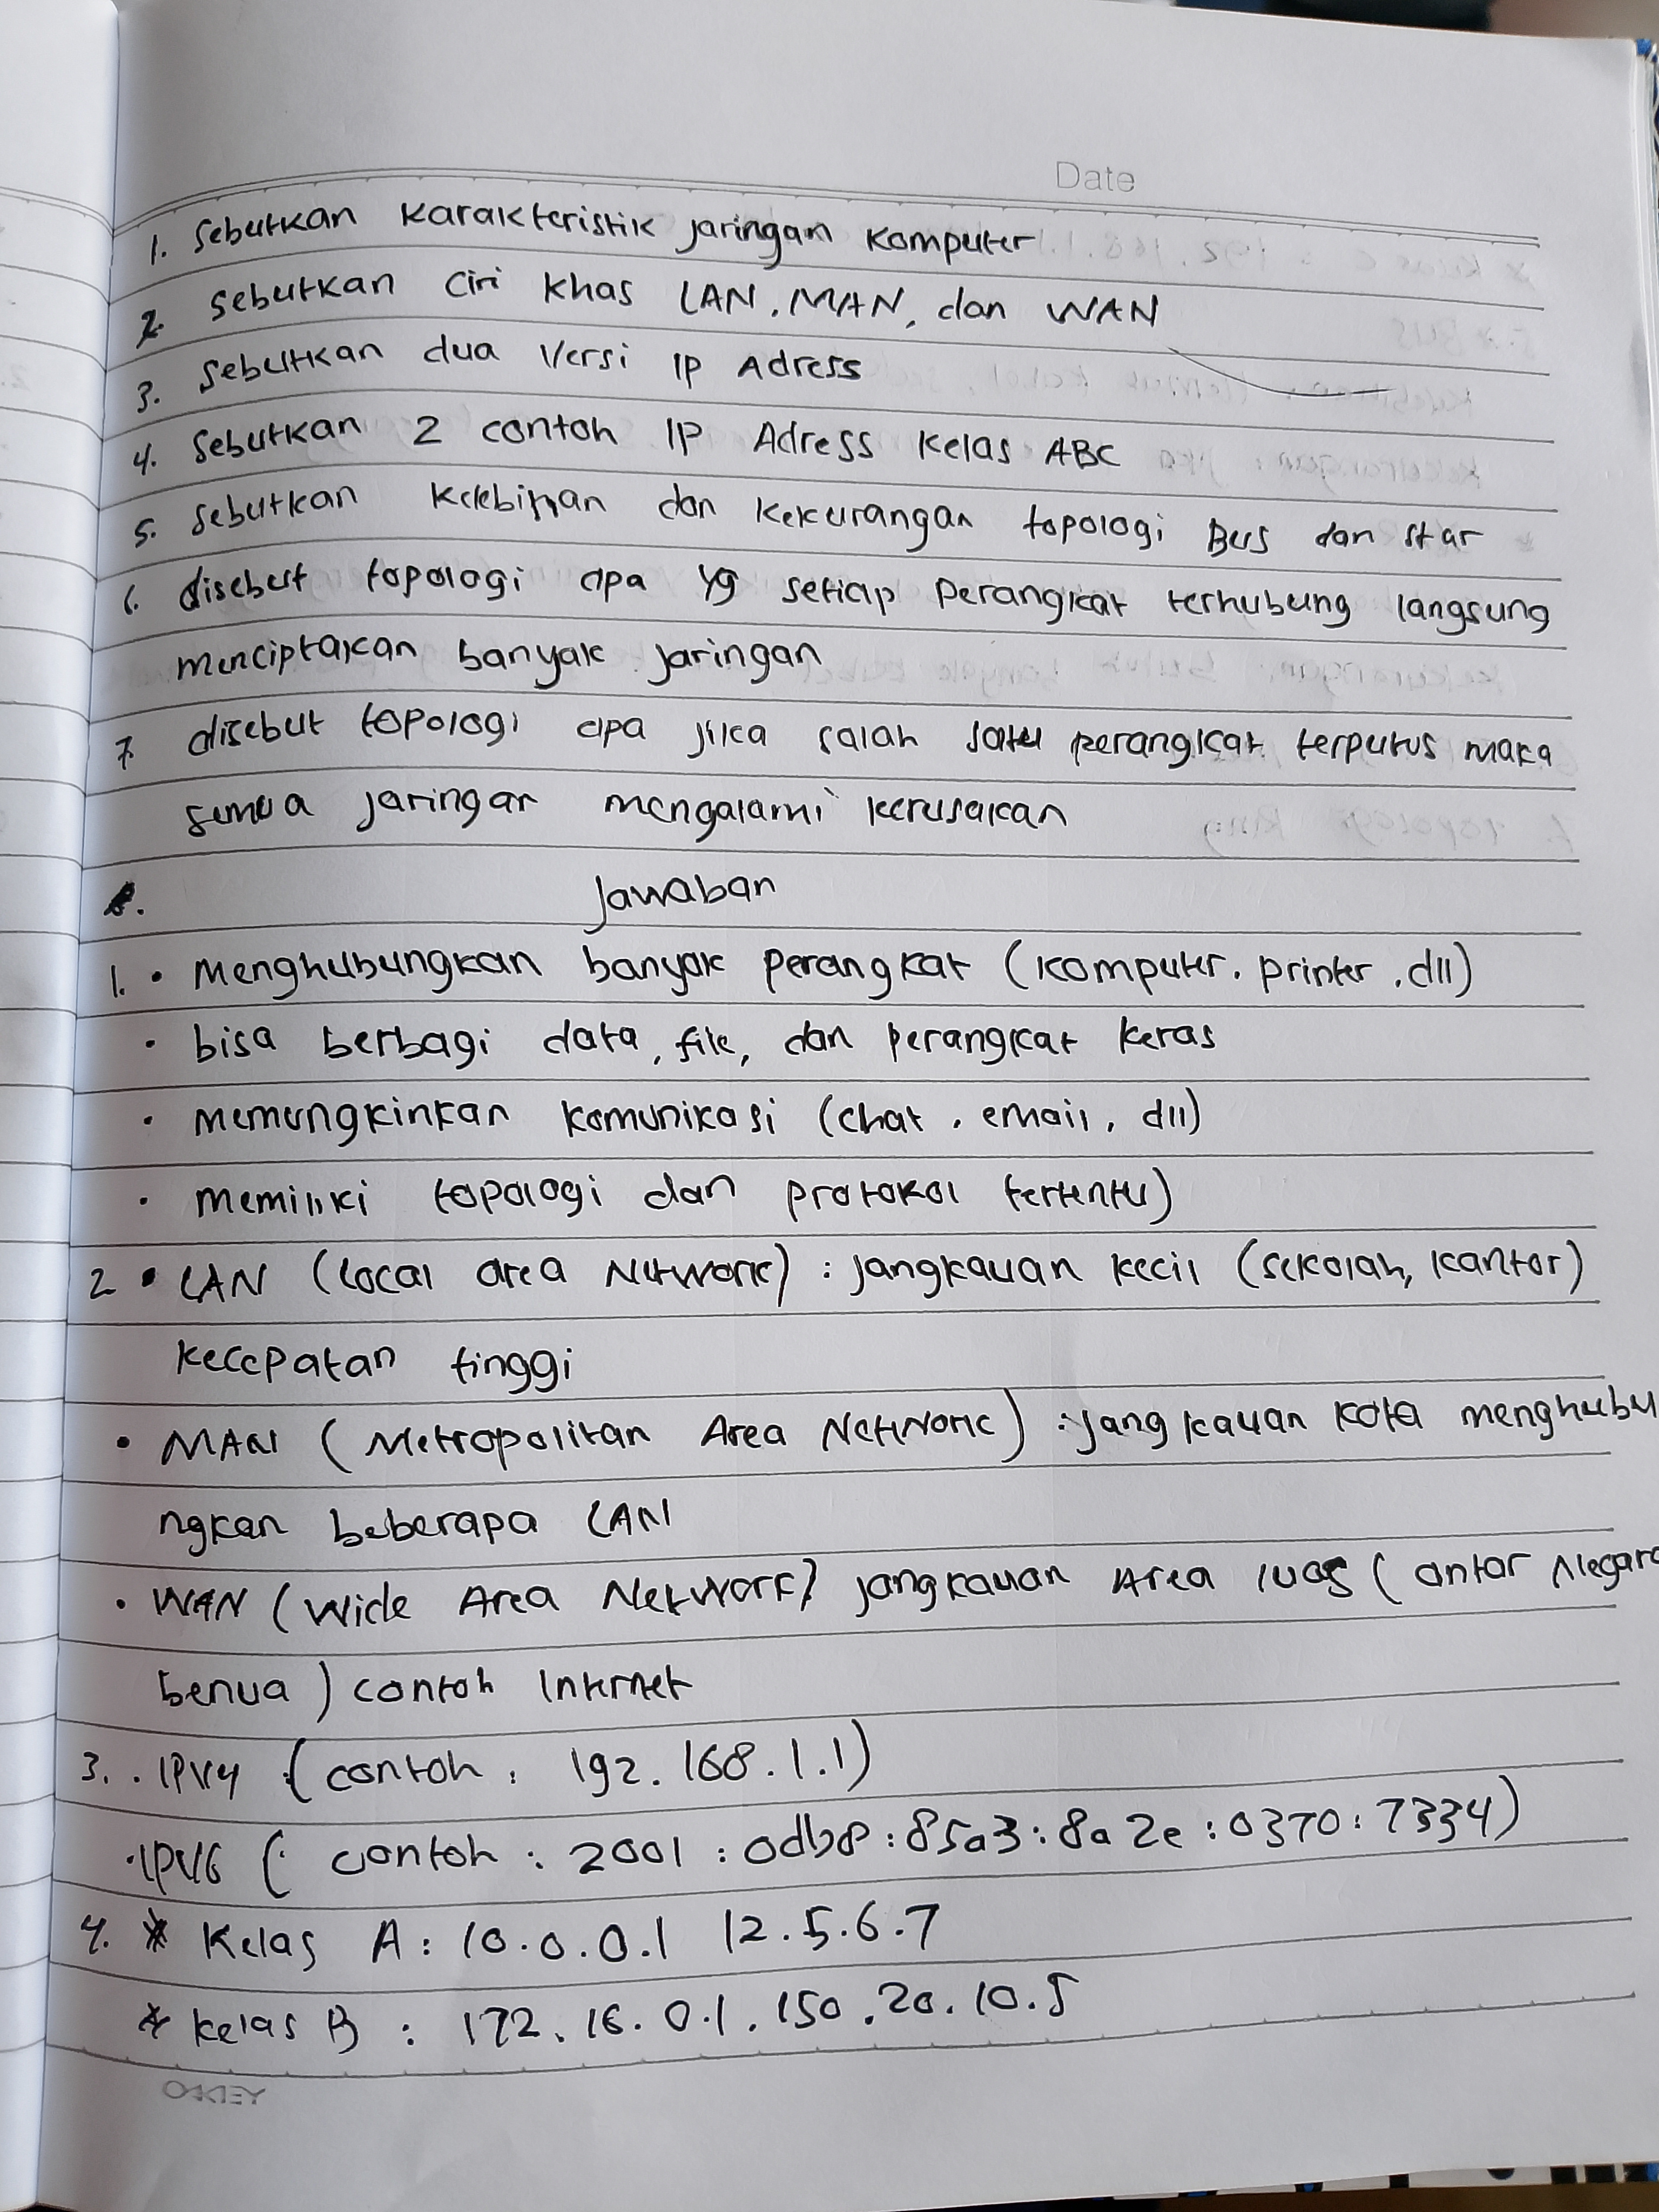 Date
1. Sebutkan Karakteristik jaringan Komputer
2. Sebutkan Ciri khas LAN, MAN, dan WAN
3. Sebutkan dua Versi IP Adress
4. Sebutkan 2 contoh IP Adress Kelas ABC
5. Sebutkan Kelebihan dan Kekurangan topologi Bus dan Star
6. disebut topologi apa yg setiap Perangkat terhubung langsung
menciptakan banyak jaringan
7. disebut topologi apa jika salah satu perangkat terputus maka
semua jaringan mengalami kerusakan
Jawaban
1. • Menghubungkan banyak Perangkat (Komputer. printer .dll)
• bisa berbagi data, file, dan Perangkat Keras
• memungkinkan Komunikasi (chat . email, dll)
• memiliki topologi dan protokol tertentu)
2 • LAN (Local area Network) : jangkauan kecil (sekolah, kantor)
kecepatan tinggi
• MAN (Metropolitan Area Network) : jangkauan Kota menghubu
ngkan beberapa LAN
• WAN (Wide Area Network) jangkauan Area luas (antar Negara
benua) contoh Internet
3. . IPV4 (contoh : 192.168.1.1)
• IPV6 (: contoh : 2001 : 0db8 : 85a3 : 8a2e : 0370 : 7334)
4. * Kelas A : 10.0.0.1 12.5.6.7
* Kelas B : 172.16.0.1.150.20.10.5
OKEY